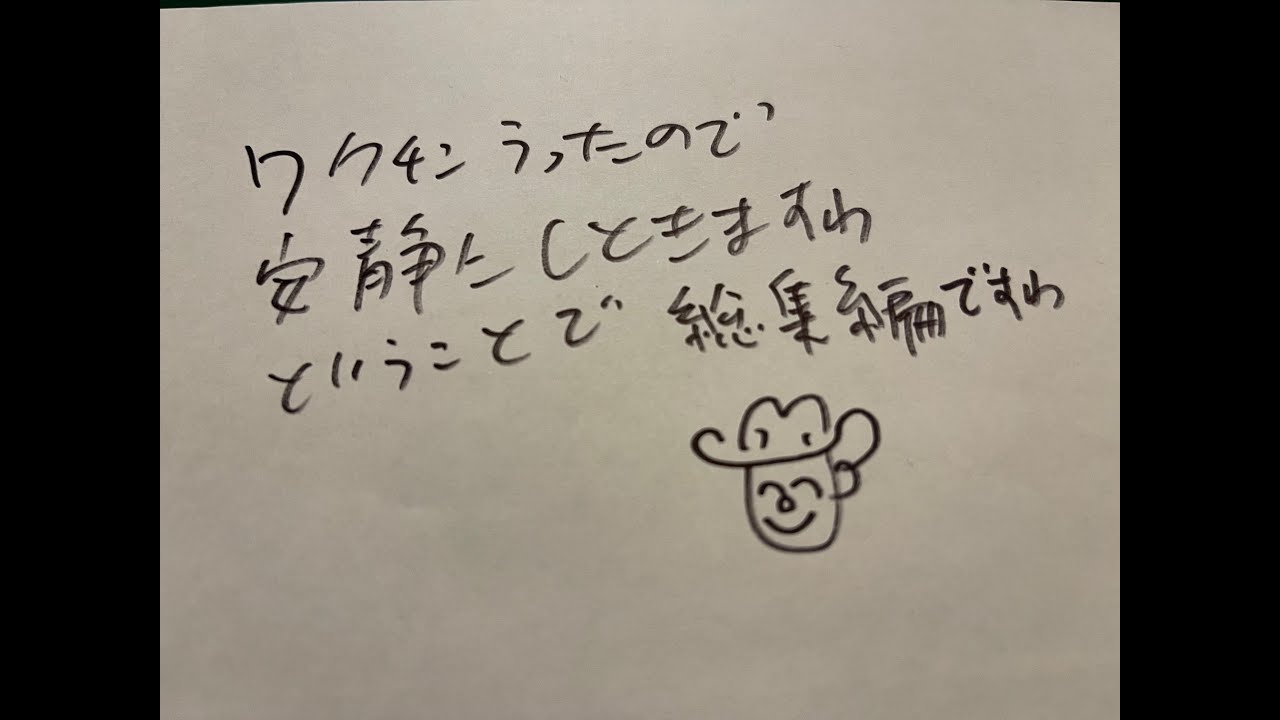 ワクチンうったので
安静にしときますわ
ということで 総集編ですわ